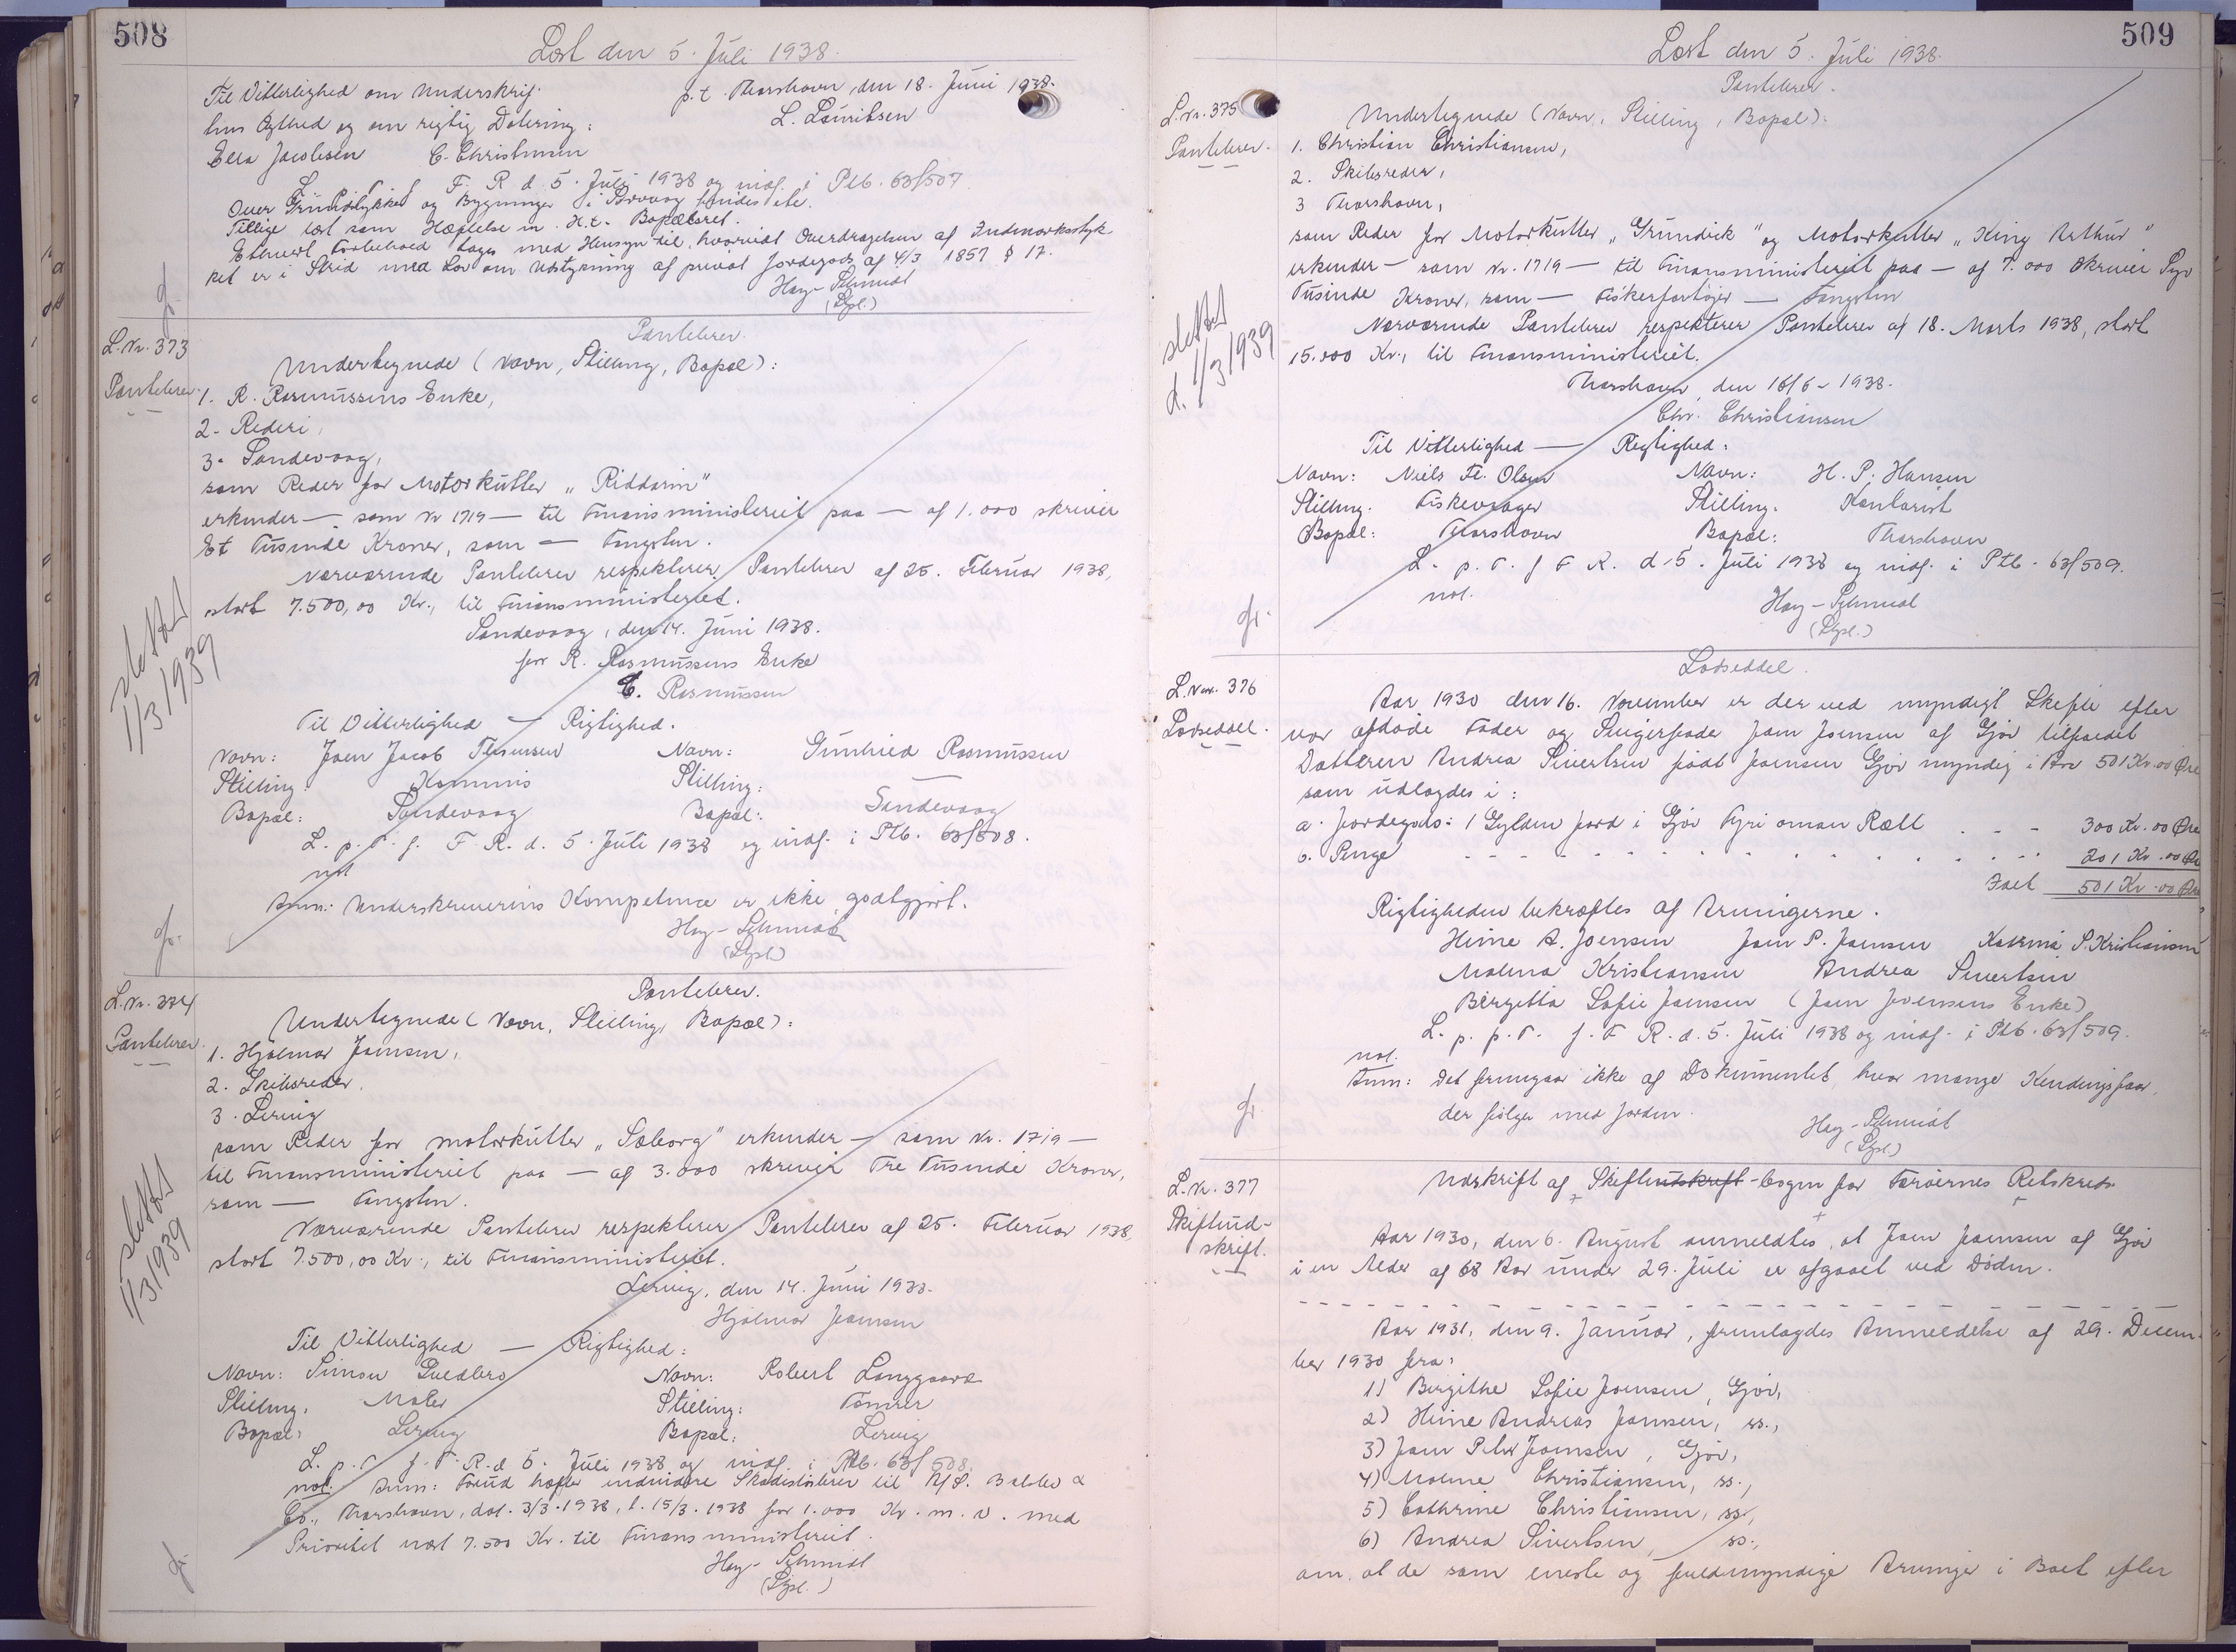 508
Læst den 5. Juli 1938.
Til Vitterlighed om Underskrif-
tens Ægthed og om rigtig Datering:
p.t. Thorshavn, den 18. Juni 1938.
L. Lauritsen
Ella Jacobsen C. Christensen
L. p. T. f. F. R. d. 5. Juli 1938 og indf. i Ptb. 63/507.
Over Grundstykket og Bygninger i Porvaag findes ete.
Tillige læst som Hæftelse in. H.t. Bopælsret.
Ethvert Forbehold tages med Hensyn til, hvorvidt Overdragelsen af Indmarksstyk-
ket er i Strid med Lov om Udstykning af privat Jordegods af 4/3 1857 § 17.
Hay-Schmidt
(Stpl.)
gr.
L.Nr. 373
Pantebrev
Pantebrev.
Undertegnede (Navn, Stilling, Bopæl):
1. R. Rasmussens Enke,
2. Rederi,
3. Sandevaag,
som Reder for Motorkutter „Riddarin”
erkender — som Nr 1719 — til Finansministeriet paa — af 1.000 skriver
Et Tusinde Kroner, som — Fangsten.
Nærværende Pantebrev respekterer Pantebrev af 25. Februar 1938,
stort 7.500,00 Kr., til Finansministeriet.
Sandevaag, den 14. Juni 1938.
for R. Rasmussens Enke
C. Rasmussen
slettet
1/3 1939
Til Vitterlighed — Rigtighed.
Navn: Joen Jacob Thomsen Navn: Gunhild Rasmussen
Stilling: Kommis Stilling: —
Bopæl: Sandevaag Bopæl: Sandevaag
L. p. T. f. F. R. d. 5. Juli 1938 og indf. i Ptb. 63/508.
not
Anm: Underskriverens Kompetence er ikke godtgjort.
Hay-Schmidt
(Stpl.)
gr.
L.Nr. 374
Pantebrev.
Pantebrev.
Undertegnede (Navn, Stilling, Bopæl):
1. Hjalmar Joensen,
2. Skibsreder,
3. Lervig
som Reder for Motorkutter „Sæborg” erkender — som Nr. 1719 —
til Finansministeriet paa — af 3.000 skriver Tre Tusinde Kroner,
som — Fangsten.
Nærværende Pantebrev respekterer Pantebrev af 25. Februar 1938,
stort 7.500,00 Kr., til Finansministeriet.
Lervig, den 14. Juni 1938.
Hjalmar Joensen
slettet
1/3 1939
Til Vitterlighed — Rigtighed:
Navn: Simon Navn: Robert Langgaard
Stilling: Maler Stilling: Tømrer
Bopæl: Lervig Bopæl: Lervig
L. p. T. f. F. R. d. 5. Juli 1938 og indf. i Ptb. 63/508.
not. Anm: Forud hæfter endvidere Skadesløsbrev til A/S. &
Co., Thorshavn, dat. 3/3. 1938, l. 15/3. 1938 for 1.000 Kr. m. v. med
Prioritet næst 7.500 Kr. til Finansministeriet.
Hay-Schmidt
(Stpl.)
gr.
509
Læst den 5. Juli 1938.
L.Nr. 375
Pantebrev.
Pantebrev.
Undertegnede (Navn, Stilling, Bopæl):
1. Christian Christiansen,
2. Skibsreder,
3 Thorshavn,
som Reder for Motorkutter „Grundick” og Motorkutter „King Arthur”
erkender — som Nr. 1719 — til Finansministeriet paa — af 7.000 skriver Syv
Tusinde Kroner, som — Fiskerfartøjer — Fangsten
Nærværende Pantebrev respekterer Pantebrev af 18. Marts 1938, stort
15.000 Kr., til Finansministeriet.
Thorshavn, den 16/6 - 1938.
Chr. Christiansen
slettet
d. 1/3 1939
Til Vitterlighed — Rigtighed:
Navn: Niels Fr. Olsen Navn: H. P. Hansen
Stilling. Fiskevrager Stilling. Kontorist
Bopæl: Thorshavn Bopæl: Thorshavn
L. p. T. f F R. d. 5. Juli 1938 og indf. i Ptb. 63/509.
not.
Hay-Schmidt
(Stpl.)
gr.
L.Nr. 376
Lodseddel.
Lodseddel.
Aar 1930 den 16. November er der ved myndigt Skifte efter
vor afdøde Fader og Svigerfader Joen Joensen af Gjov tilfaldet
Datteren Andrea Sivertsen født Joensen Gjov myndig i Arv 501 Kr. 00 Øre
som udlagdes i:
a. Jordegods: 1 Gylden Jord i Gjov Fyri oman Ræll 300 Kr. 00 Øre
b. Penge 201 Kr. 00 Øre
Ialt 501 Kr. 00 Øre
Rigtigheden bekræftes af Arvingerne.
Heine A. Joensen Joen P. Joensen Katrina S. Kristiansen
Malina Kristiansen Andrea Sivertsen
Birgitta Sofie Joensen (Joen Joensens Enke)
L. p. p. T. f. F R. d. 5. Juli 1938 og indf. i Ptb. 63/509.
not.
Anm: Det fremgaar ikke af Dokumentet, hvor mange Kendingsfaar,
der følger med Jorden.
Hay-Schmidt
(Stpl.)
gr.
L.Nr. 377
Skifteud-
skrift.
Udskrift af Skifteudskrift-bogen for Færøernes Retskreds
Aar 1930, den 6. August anmeldtes, at Joen Joensen af Gjov
i en Alder af 68 Aar under 29. Juli er afgaaet ved Døden.
Aar 1931, den 9. Januar, fremlagdes Anmeldelse af 29. Decem-
ber 1930 fra:
1) Birgithe Sofie Joensen, Gjov,
2) Heine Andreas Joensen, ss.,
3) Joen Peter Joensen, Gjov,
4) Malene Christiansen, ss.,
5) Cathrine Christiansen, ss.,
6) Andrea Sivertsen, ss.,
om, at de som eneste og fuldmyndige Arvinger i Boet efter